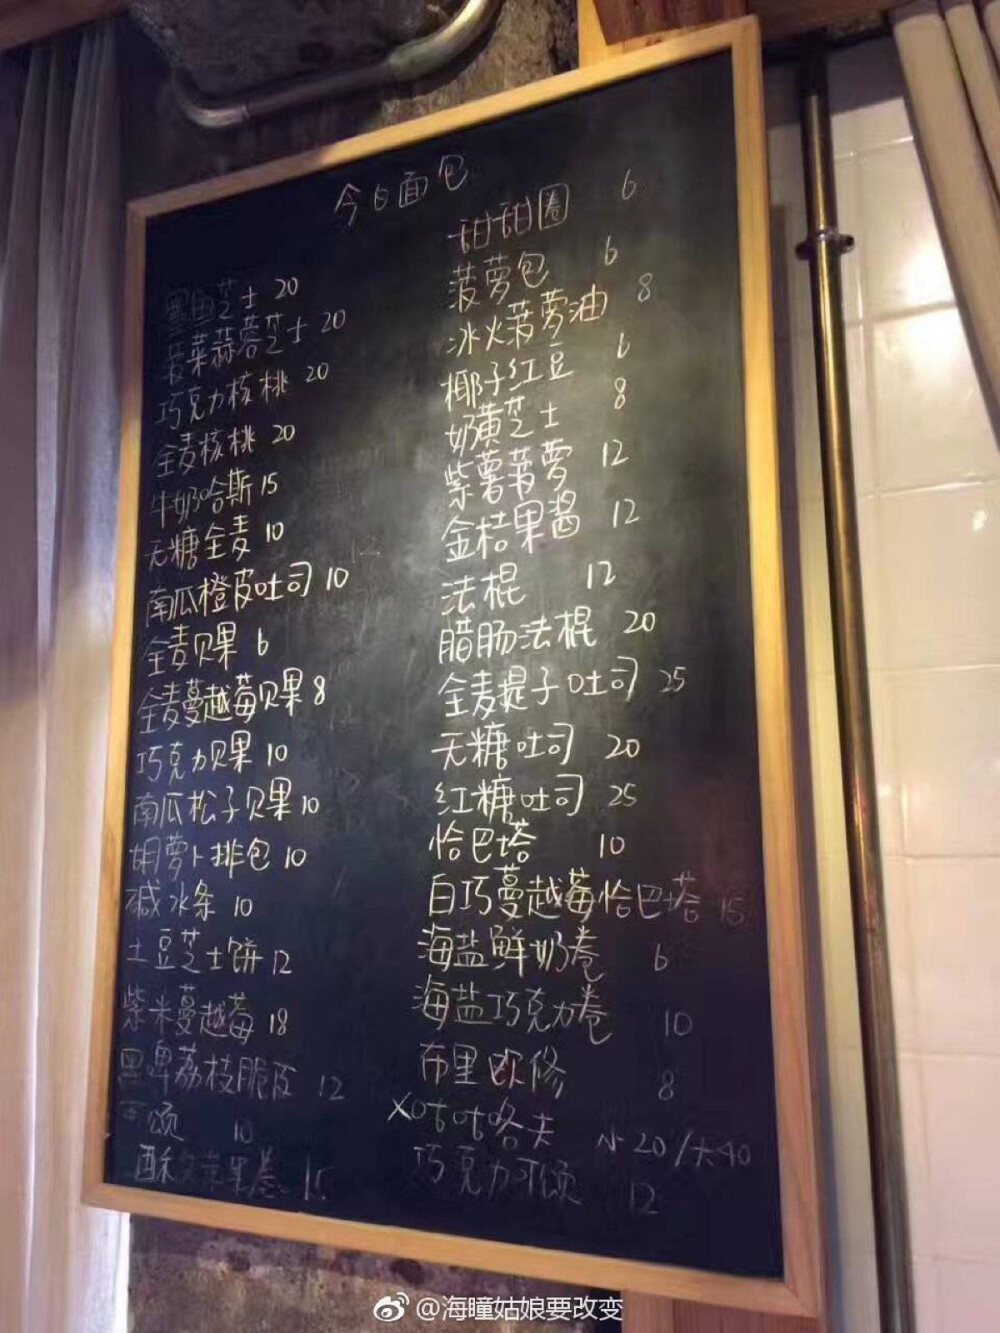 今日面包
墨鱼芝士 20
菠菜蒜蓉芝士 20
巧克力核桃 20
全麦核桃 20
牛奶哈斯 15
无糖全麦 10
南瓜橙皮吐司 10
全麦贝果 6
全麦蔓越莓贝果 8
巧克力贝果 10
南瓜松子贝果 10
胡萝卜排包 10
碱水条 10
土豆芝士饼 12
紫米蔓越莓 18
黑啤荔枝脆皮 12
可颂 10
酥皮苹果卷 15
甜甜圈 6
菠萝包 6
冰火菠萝油 8
椰子红豆 6
奶黄芝士 8
紫薯菠萝 12
金桔果酱 12
法棍 12
腊肠法棍 20
全麦提子吐司 25
无糖吐司 20
红糖吐司 25
恰巴塔 10
白巧蔓越莓恰巴塔 15
海盐鲜奶卷 6
海盐巧克力卷 10
布里欧修 8
X咕咕咯夫 小20/大40
巧克力可颂 12
@海瞳姑娘要改变